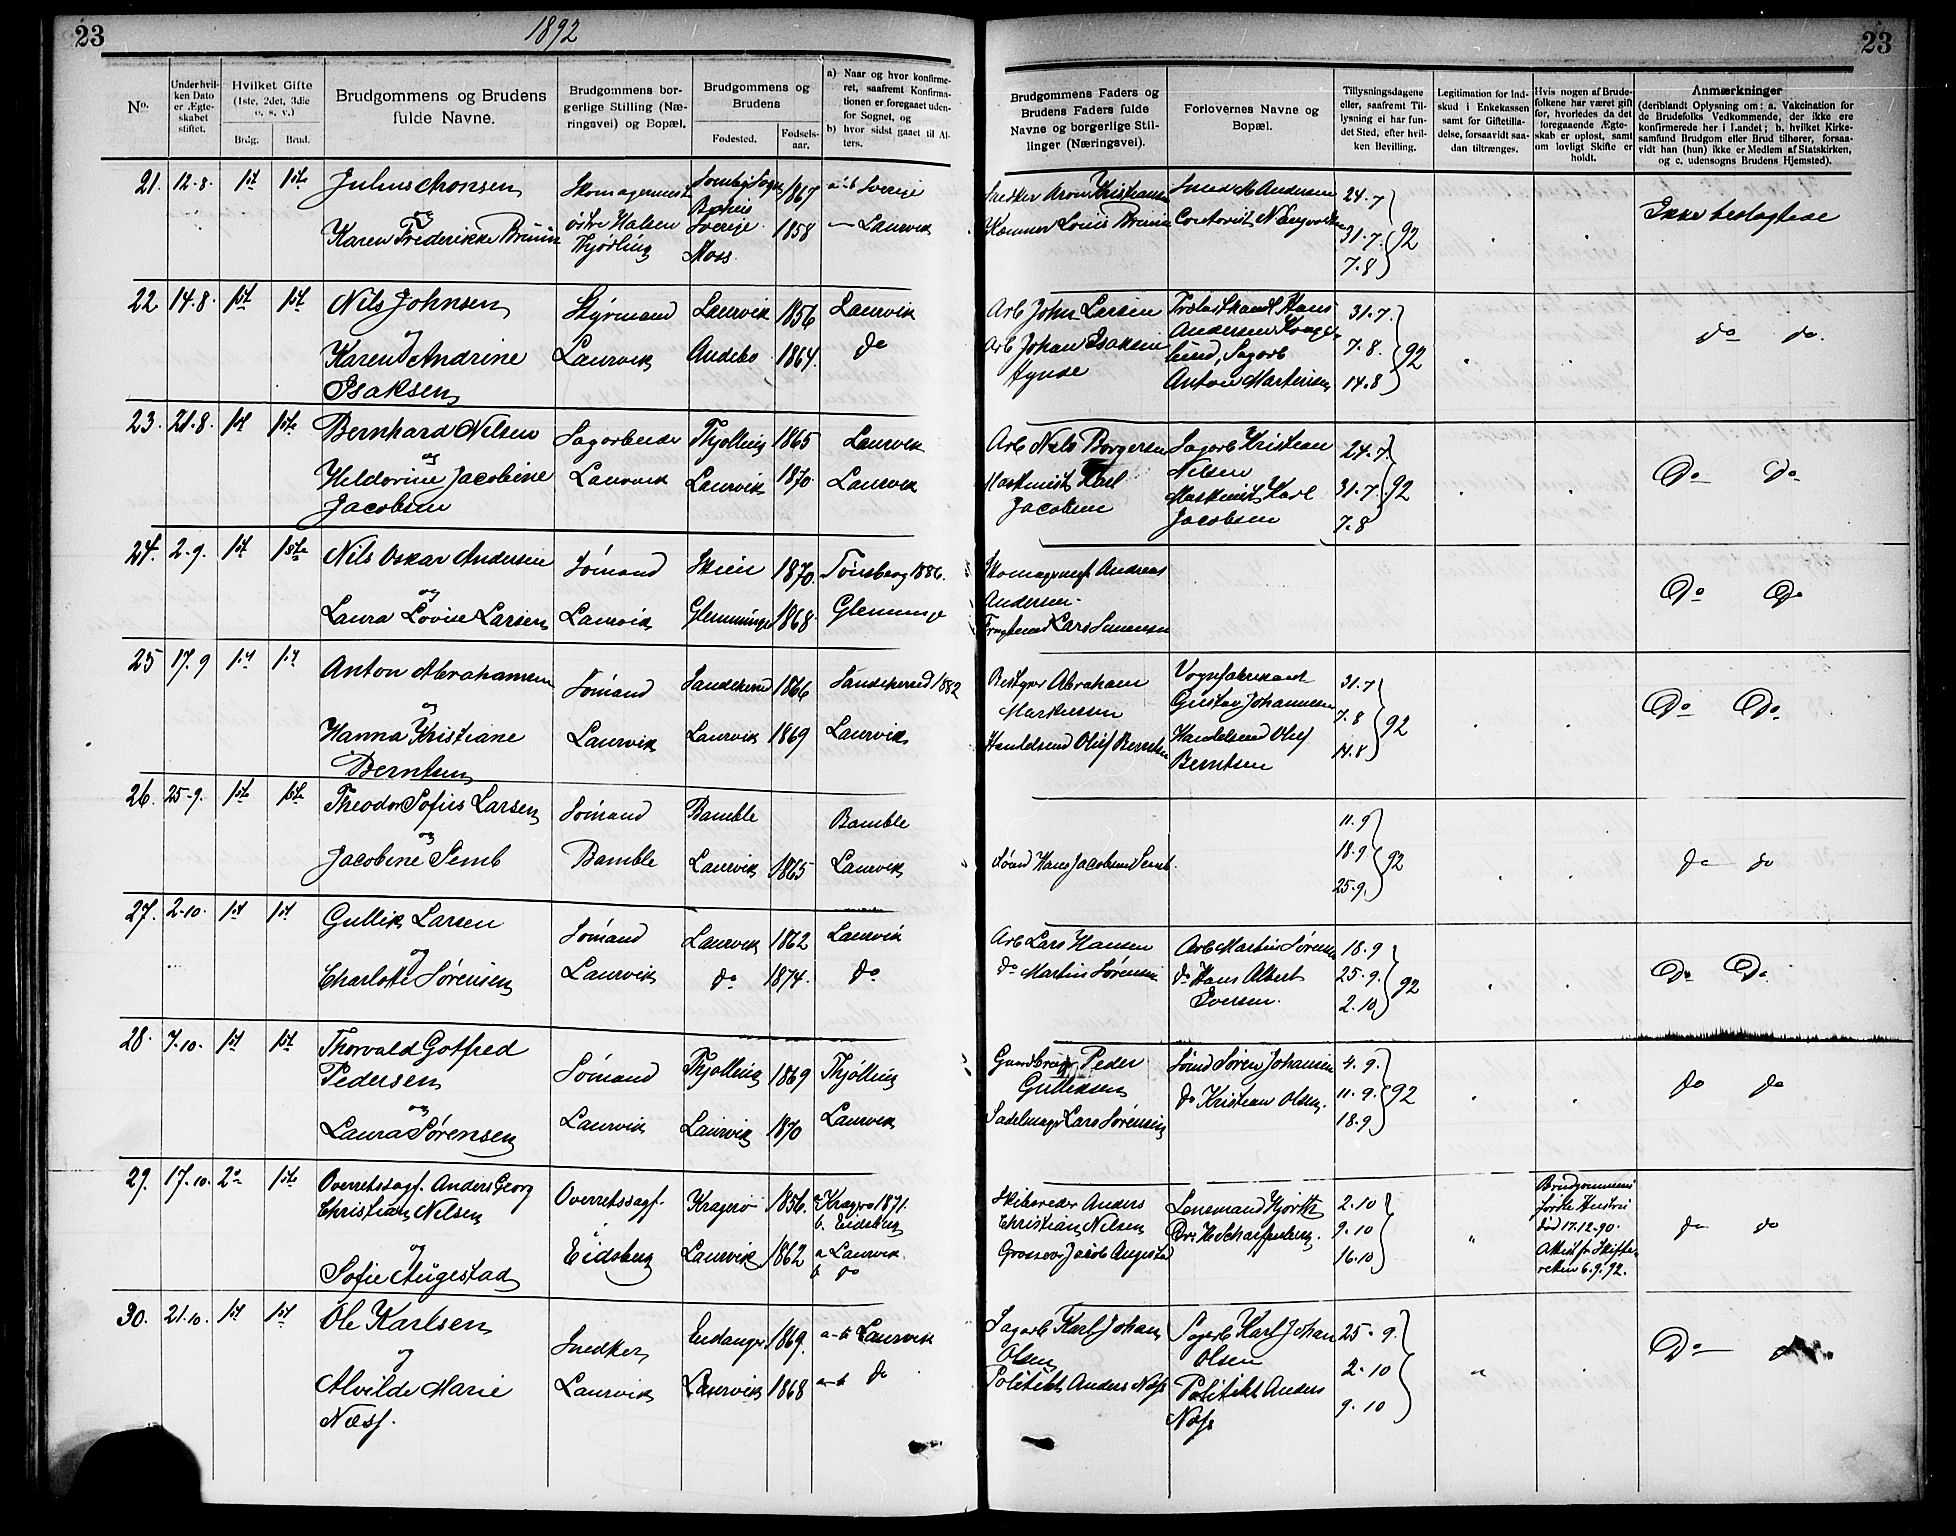 23
1892
23
No.
Underhvilken Dato er Ægteskabet stiftet.
Hvilket Gifte (1ste, 2det, 3die o. s. v.)
Brdg.
Brud.
Brudgommens og Brudens fulde Navne.
Brudgommens borgerlige Stilling (Næringsvei) og Bopæl.
Brudgommens og Brudens
Fødested.
Fødselsaar.
a) Naar og hvor konfirmeret, saafremt Konfirmationen er foregaaet udenfor Sognet, og
b) hvor sidst gaaet til Alters.
Brudgommens Faders og Brudens Faders fulde Navne og borgerlige Stillinger (Næringsvei).
Forlovernes Navne og Bopæl.
Tillysningsdagene eller, saafremt Tillysning ei har fundet Sted, efter hvilken Bevilling.
Legitimation for Indskud i Enkekassen samt for Giftetilladelse, forsaavidt saadan tiltrænges.
Hvis nogen af Brudefolkene har været gift før, hvorledes da det foregaaende Ægteskab er opløst, samt om lovligt Skifte er holdt.
Anmærkninger
(deriblandt Oplysning om: a. Vakcination for de Brudefolks Vedkommende, der ikke ere konfirmerede her i Landet; b. hvilket Kirkesamfund Brudgom eller Brud tilhører, forsaavidt han (hun) ikke er Medlem af Statskirken, og c. udensogns Brudens Hjemsted).
21. 12-8. 1st 1ste
Julius Aronsen
og
Karen Frederikke Bruun
Skomagermest
østre Halsen
Thjørling
Sverige
Moss
1867
1858
a-b Sverige
Laurvik
Snedker Aron Kristiansen
Louis Bruun
Smed M Andersen
Contorist
24-7
31-7
7-8
92
Ikke beslægtede
22 14-8. 1st 1st
Nils Johnsen
og
Karen Andrine
Isaksen
Styrmand
Laurvik
Laurvik
Andebo
1856
1864.
Laurvik
do
Arb John Larsen
Arb Johan Isaksen
Hynne
Trælasthandl Hans
Andersen
Sagarb
Anton Martinsen
31-7.
7-8.
14-8
92
do do.
23. 21-8. 1st 1ste
Bernhard Nilsen
og
Heldorine Jacobine
Jacobsen
Sagarbeider
Laurvik
Thjølling
Laurvik
1865
1870
Laurvik
Laurvik
Arb Nils Borgersen
Maskinist Karl
Jacobsen
Sagarb Kristian
Nilsen
Maskinist Karl
Jacobsen
24-7
31-7.
7-8
92
Do Do
24. 2-9. 1st 1ste
Nils Oskar Andersen
og
Laura Lovise Larsen
Sømand
Laurvik
Skien
Glemminge
1870.
1868.
Tønsberg 1886.
Glemminge
Skomagermest Andreas
Andersen.
Lars
Do Do
25 17-9 1st 1st
Anton Abrahamsen
og
Hanna Kristiane
Berntsen
Sømand
Laurvik
Sandeherred
Laurvik
1866
1869
Sandeherred 1882
Laurvik
Bestyrer Abraham
Markussen
Handelsmd Oluf Berntsen
Vognfabrikant
Gustav Johannesen
Handelsmd Oluf
Berntsen
31-7
7-8
14-8
92
Do Do.
26. 25-9. 1ste 1ste
Theodor Sofius Larsen
og
Jacobine Semb
Sømand
Bamble
Bamble
Laurvik
1865
Bamble
Laurvik
Sømd Hans Jacobsen Semb.
11.9
18.9
25.9.
92
do do
27. 2-10. 1st 1st
Gullik Larsen
og
Charlotte Sørensen
Sømand
Laurvik
Laurvik
do
1862
1874.
Laurvik
do
Arb Lars Hansen
do Martin Sørensen
Arb Martin Sørensen
do Hans Albert
Iversen.
18.9
25.9.
2.10
92
Do Do
28. 7-10. 1st 1st
Thorvald Gotfred
Pedersen
og
Laura Sørensen
Sømand
Laurvik
Thjølling
Laurvik
1869
1870
Thjølling
Laurvik
Gaardbruger Peder
Gulliksen
Sadelmager Lars Sørensen
Sømd Søren Johansen
do Kristian Olsen.
4.9.
11.9.
18.9
92
do do
29. 17-10. 2o 1ste
Overretssagf. Anders Georg
Christian Nilsen
og
Sofie Augestad
Overretssagf.
Eidsberg
Kragerø
Laurvik
1856.
1862
a Kragerø 1871.
b. Eidsberg
a Laurvik.
b do
Skibsreder Anders
Christian Nilsen
Grosserer Jacob Augestad
Lensmand Hjorth
Dr. H Scharffenberg.
2.10
9.10
16.10
Brudgommens
første Hustru
død 17.12.90.
Attest fr Skifteretten 6.9.92.
do do
30. 21-10. 1st 1st
Ole Karlsen
og
Alvilde Marie
Næss.
Snedker
Laurvik
Eidanger
Laurvik
1869.
1868
a-b Laurvik
a-b do
Sagarb Karl Johan
Olsen
Politibt Anders Næss
Sagarb Karl Johan
Olsen
Politibt Anders
Næss
25-9.
2-10
9-10
Do